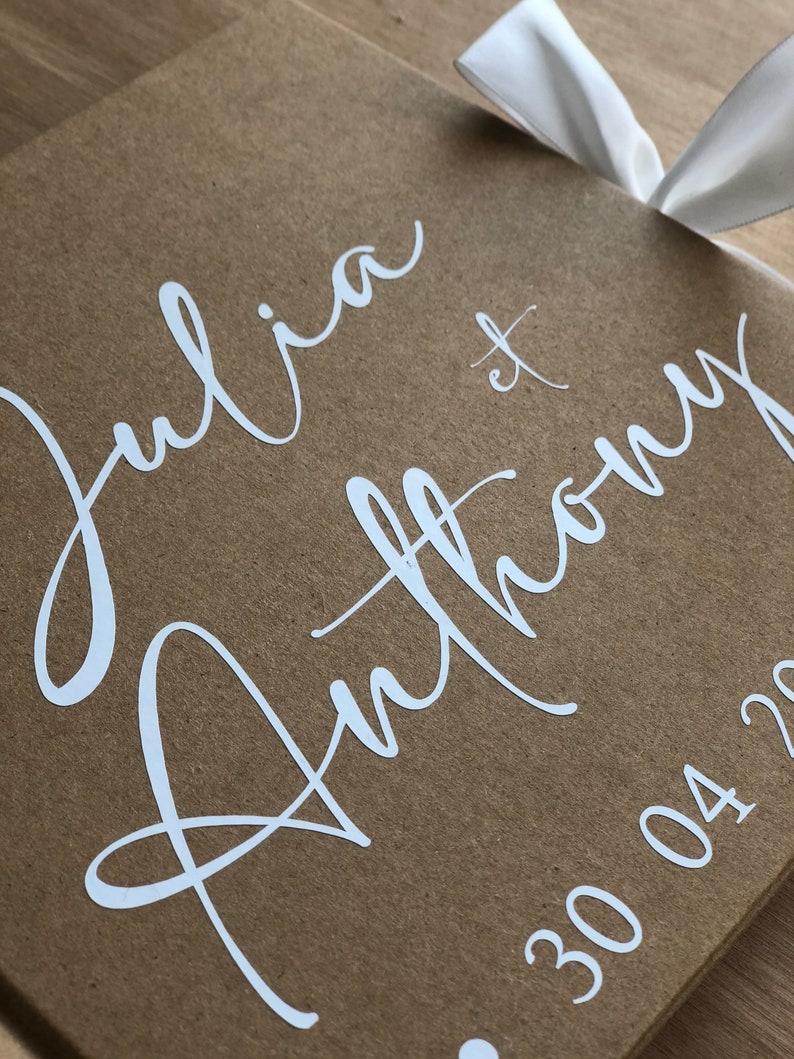 Julia
et
Anthony
30 04 20